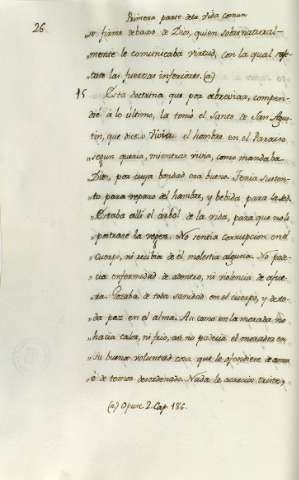 Primera parte de la vida comun
26.
se firme debaxo de Dios, quien sobrenatural-
mente le comunicaba virtud, con la qual
las fuerzas inferiores. (a)
15 Esta doctrina que por abreviar, compendié
à lo último, la tomó el Santo de San Agus-
tin, que dice: Vivía el hombre en el Paraiso
segun queria, mientras vivia, como mandaba
Dios, por cuya bondad era bueno. Tenia susten-
to para reparo del hambre, y bebida para la sed.
Estaba allí el árbol de la vida, para que no le
postrase la vejez. No sentia corrupcion en el
cuerpo, ni recibia de él molestia alguna. No pade-
cia enfermedad de adentro, ni violencia de afue-
ra. Gozaba de toda sanidad en el cuerpo, y de to-
da paz en el alma. Asi como en la morada no
hacia calor, ni frio, asi no padecia el morador en
su buena voluntad cosa que le ofendiese de amor
ó de temor desordenado. Nada le acaecia triste,
(a) Opusc. 2. Cap. 186.